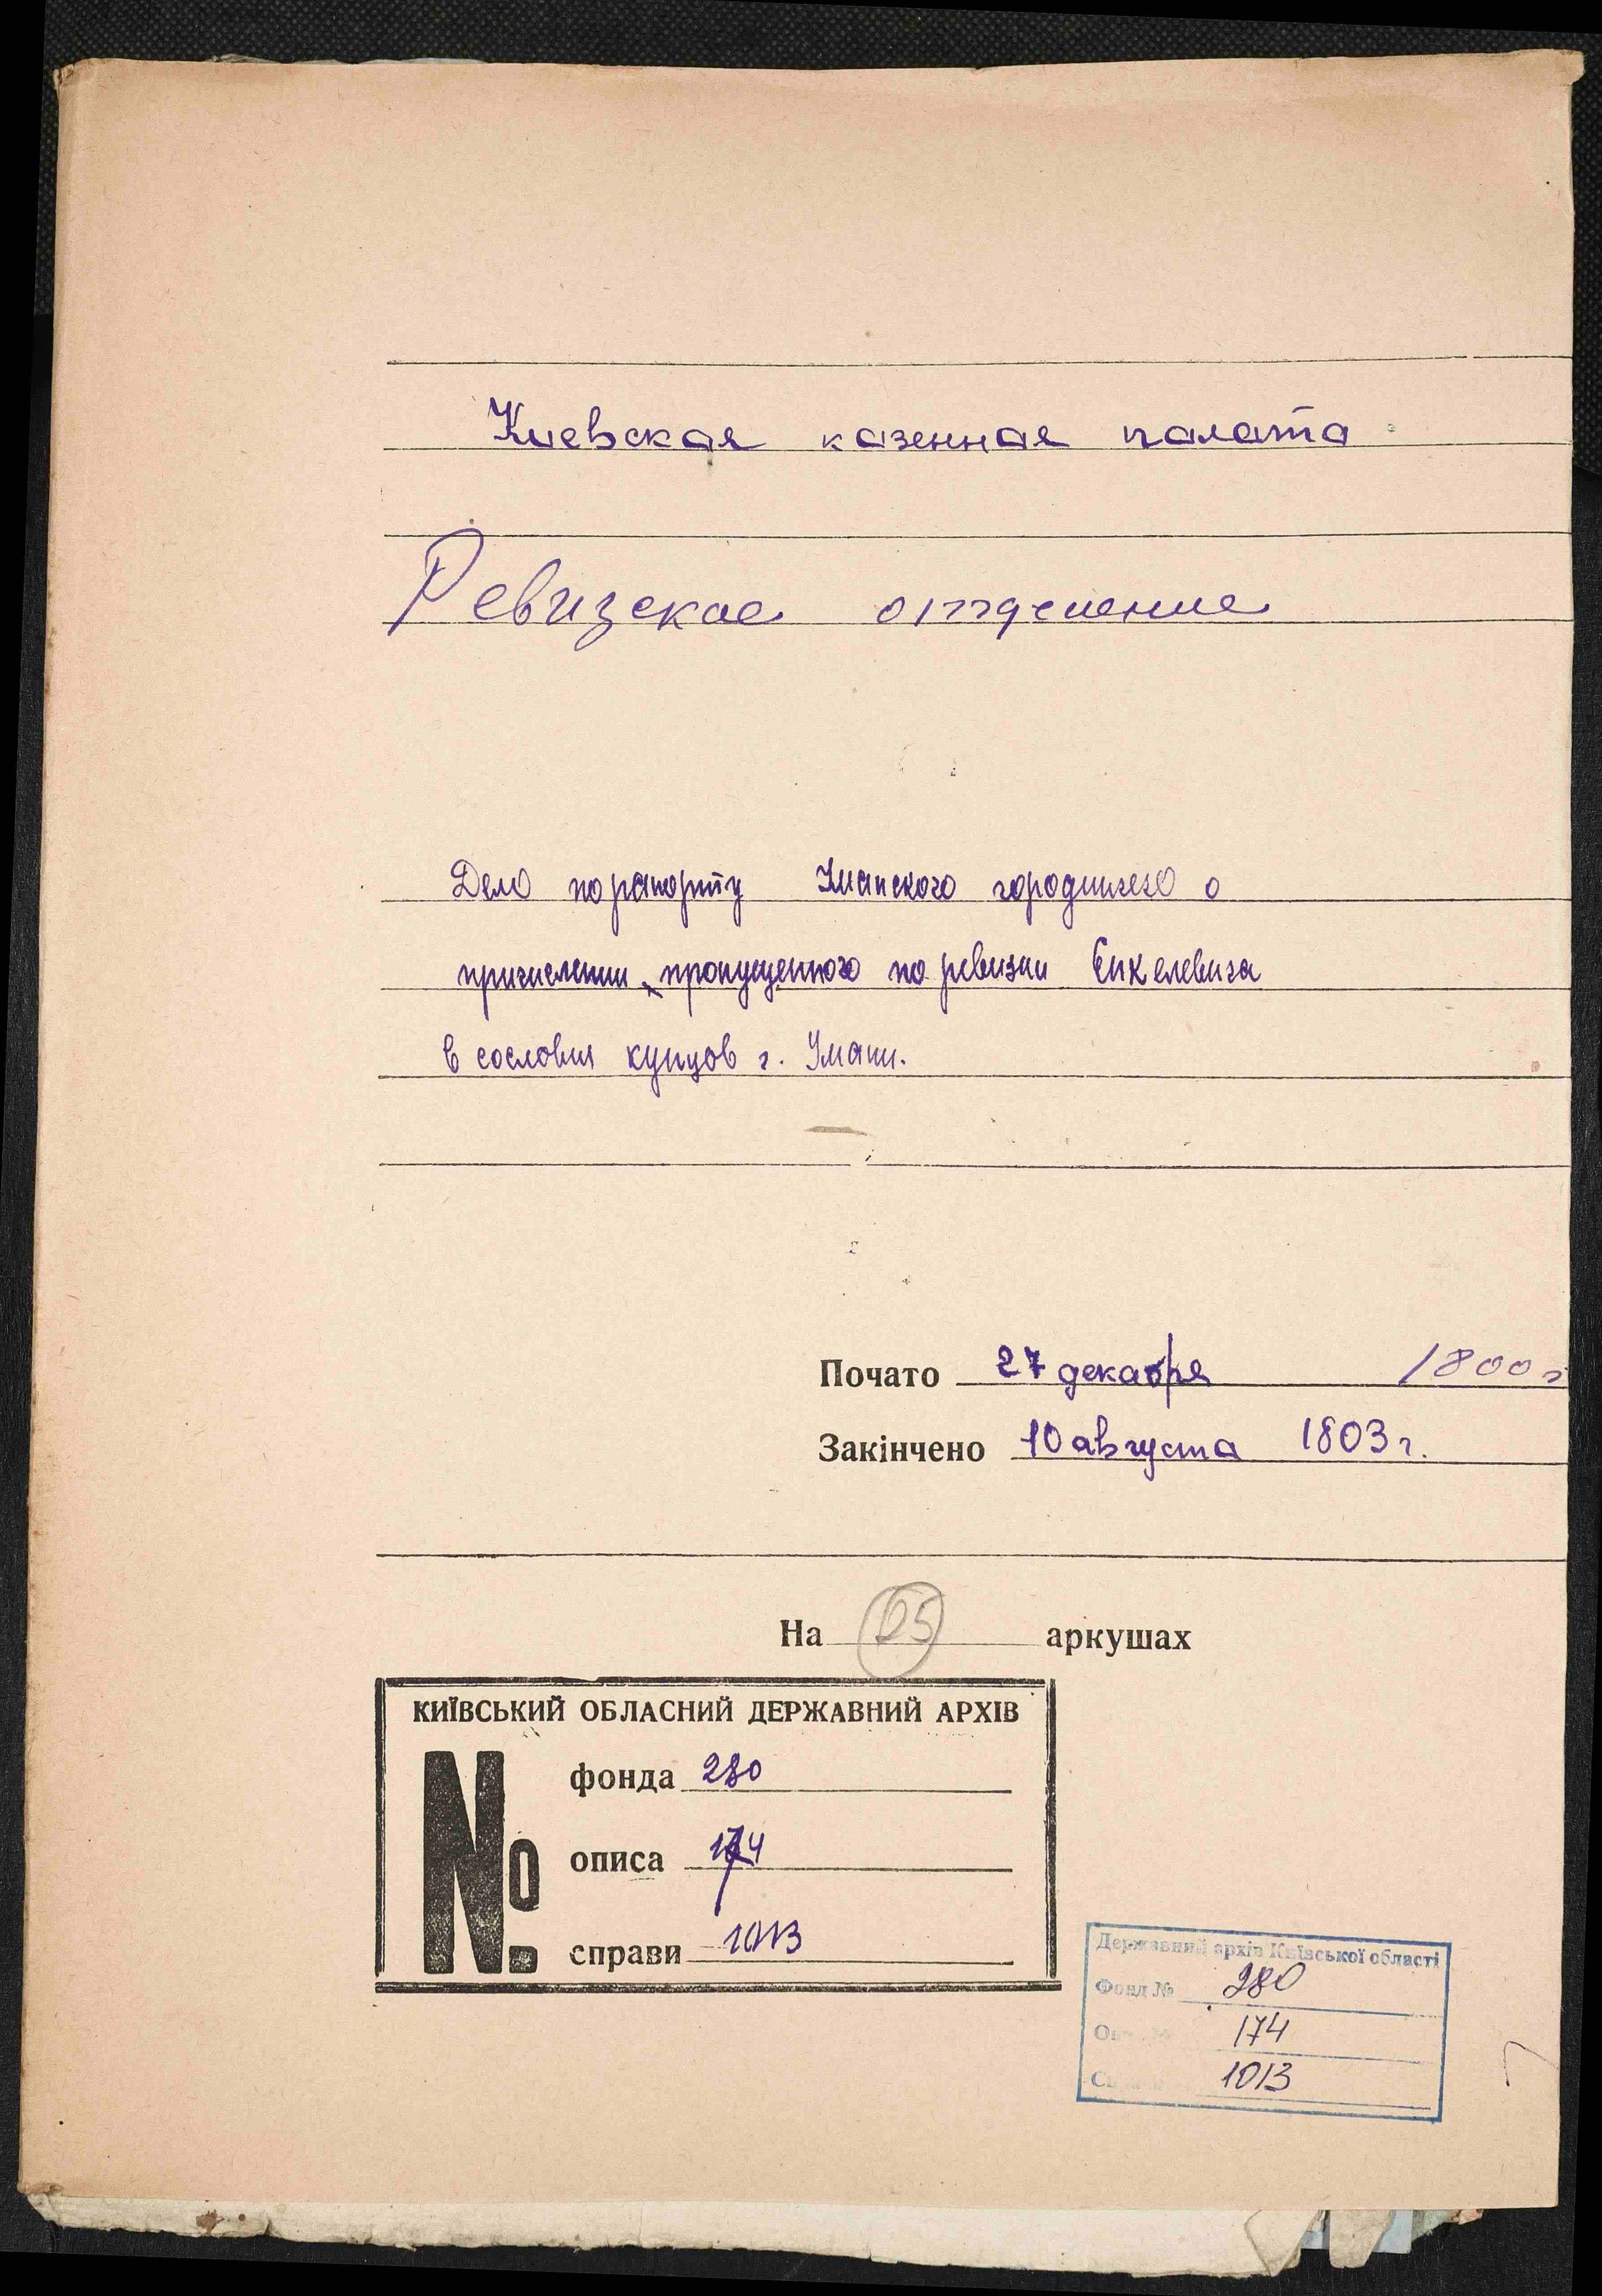 Киевская казенная палата
Ревизское отделение
Дело по рапорту Уманского городничего о
причислении пропущенного по ревизии Енкелевича
в сословия купцов г. Умани.
Почато 27 декабря 1800 г
Закінчено 10 августа 1803 г.
На 25 аркушах
КИЇВСЬКИЙ ОБЛАСНИЙ ДЕРЖАВНИЙ АРХІВ
№
фонда 280
описа 174
справи 1013
Державний архів Київської області
Фонд № 280
174
1013